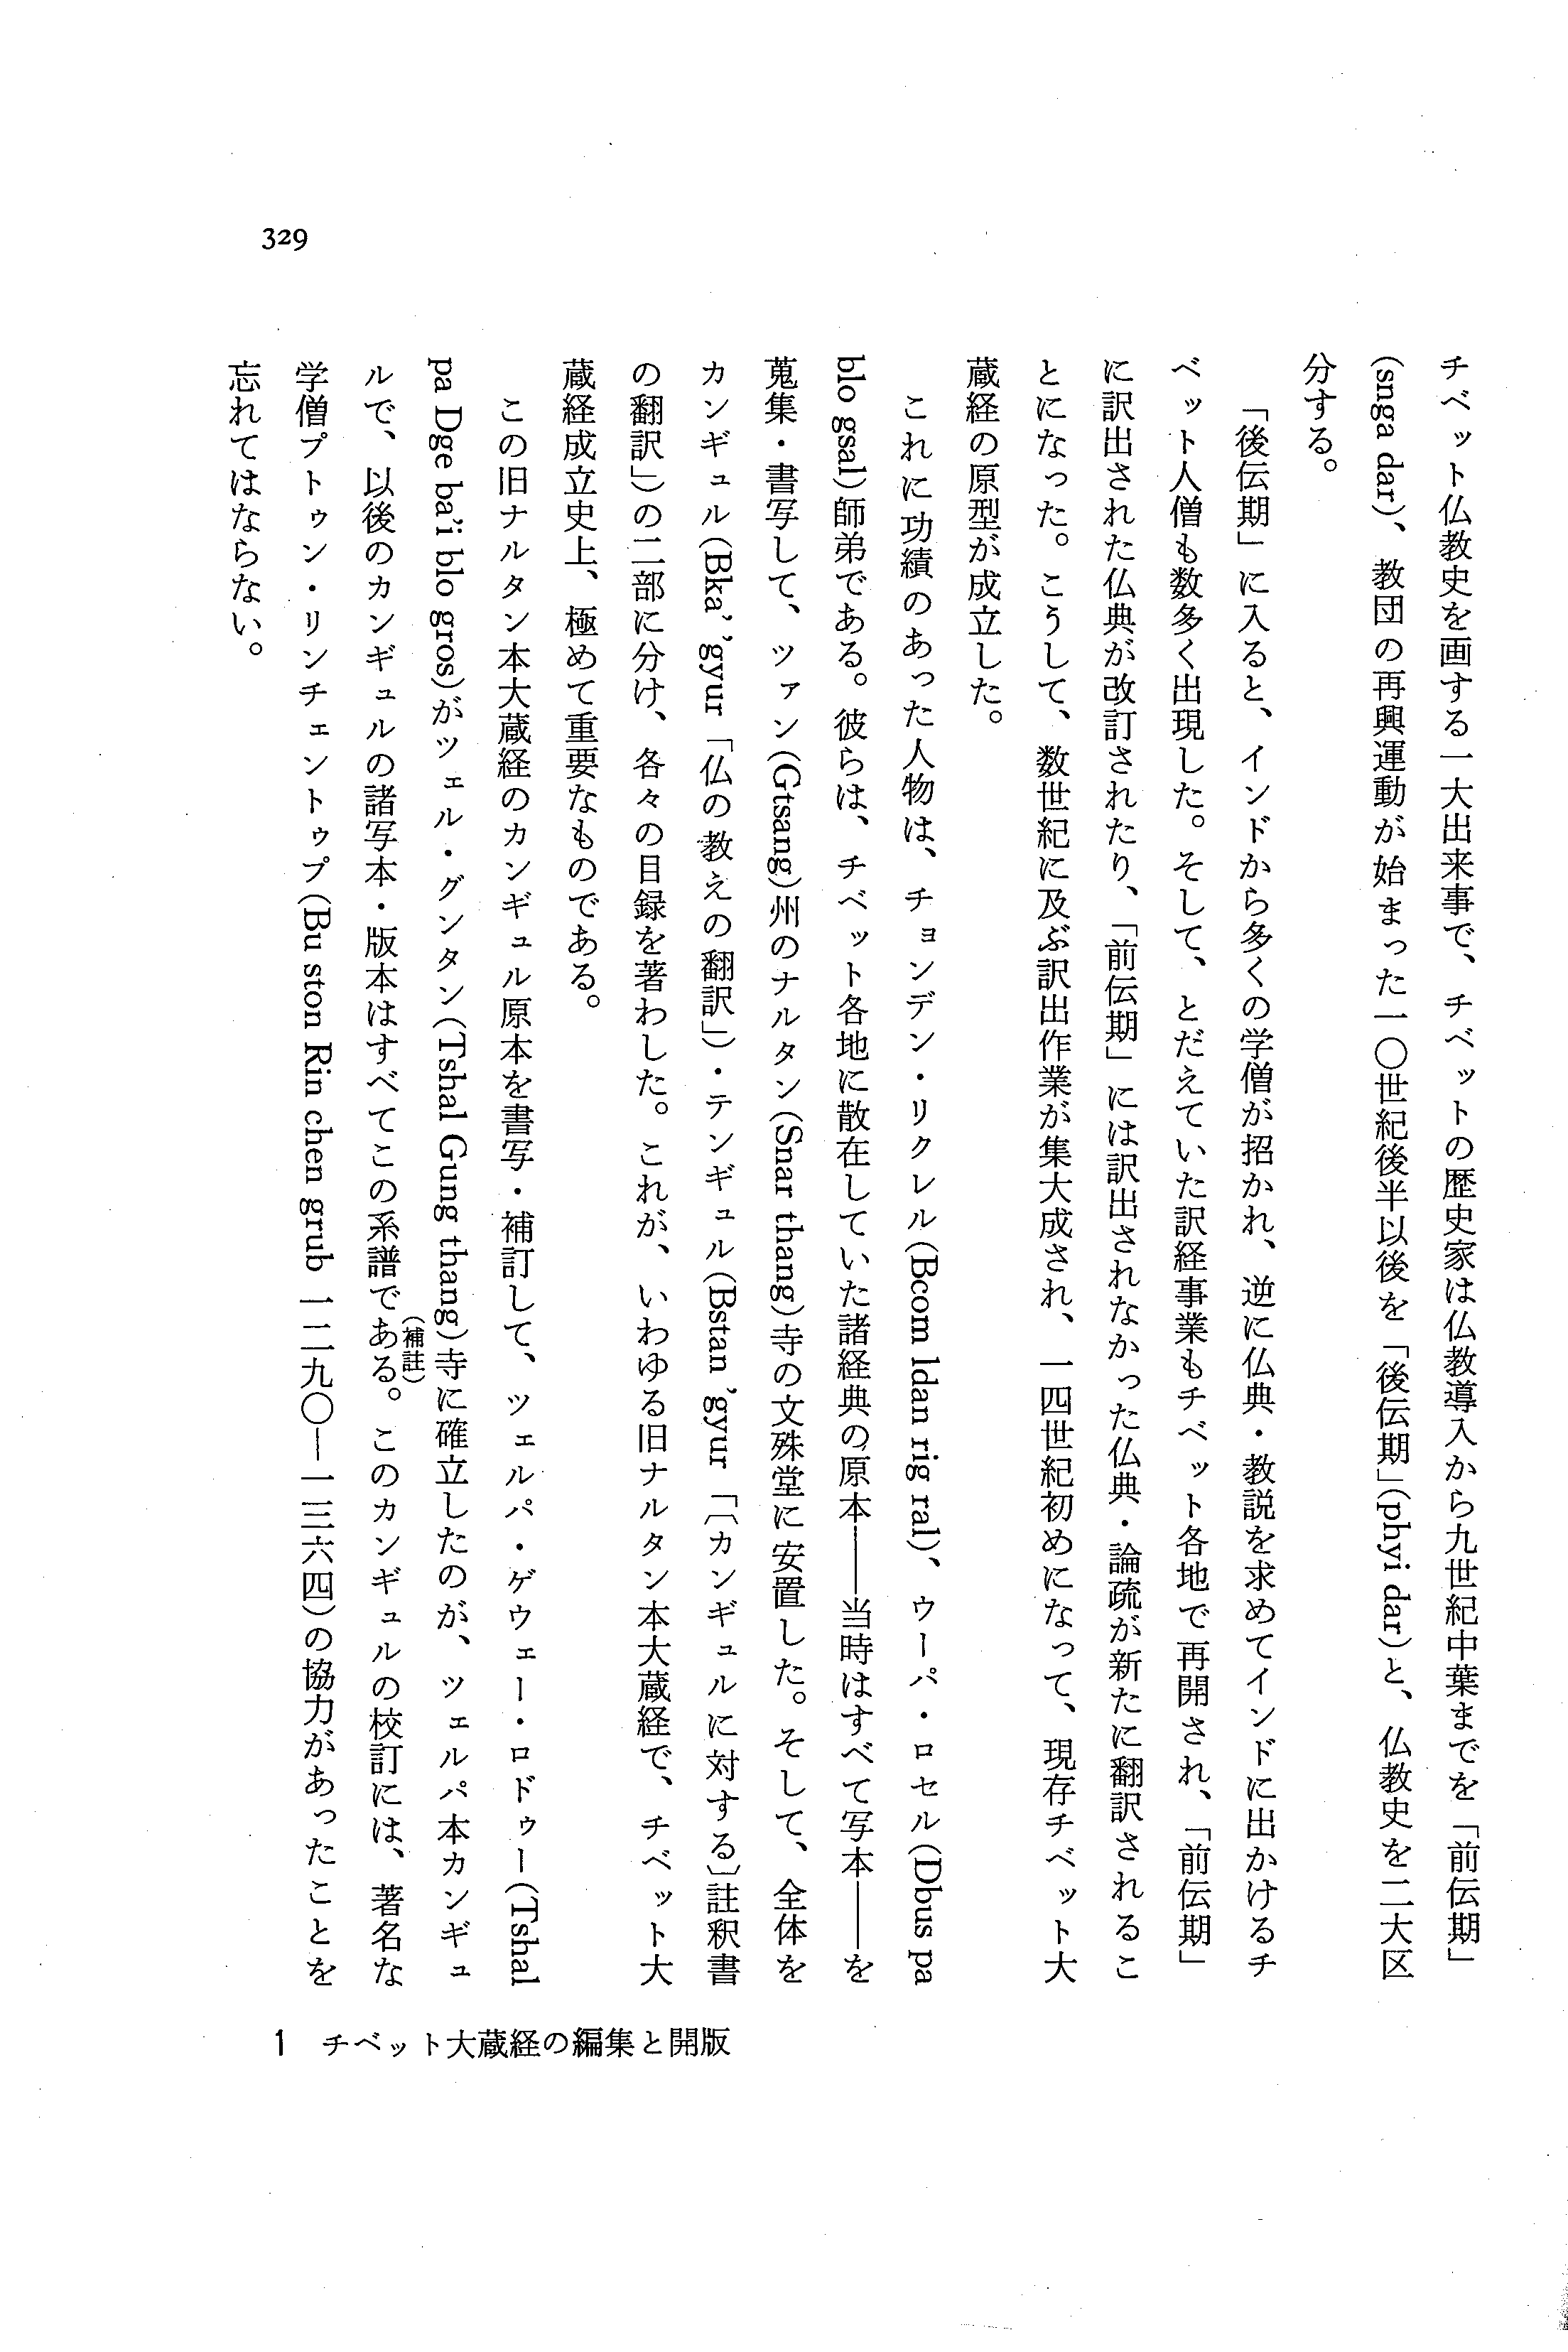 チベット仏教史を画する一大出来事で、チベットの歴史家は仏教導入から九世紀中葉までを「前伝期」
(snga dar)、教団の再興運動が始まった一〇世紀後半以後を「後伝期」(phyi dar)と、仏教史を二大区
分する。
「後伝期」に入ると、インドから多くの学僧が招かれ、逆に仏典・教説を求めてインドに出かけるチ
ベット人僧も数多く出現した。そして、とだえていた訳経事業もチベット各地で再開され、「前伝期」
に訳出された仏典が改訂されたり、「前伝期」には訳出されなかった仏典・論疏が新たに翻訳されるこ
とになった。こうして、数世紀に及ぶ訳出作業が集大成され、一四世紀初めになって、現存チベット大
蔵経の原型が成立した。
これに功績のあった人物は、チョンデン・リクレル(Bcom ldan rig ral)、ウーパ・ロセル(Dbus pa
blo gsal)師弟である。彼らは、チベット各地に散在していた諸経典の原本――当時はすべて写本――を
蒐集・書写して、ツァン(Gtsang)州のナルタン(Snar thang)寺の文殊堂に安置した。そして、全体を
カンギュル(Bka' 'gyur「仏の教えの翻訳」)・テンギュル(Bstan 'gyur「〔カンギュルに対する〕註釈書
の翻訳」)の二部に分け、各々の目録を著わした。これが、いわゆる旧ナルタン本大蔵経で、チベット大
蔵経成立史上、極めて重要なものである。
この旧ナルタン本大蔵経のカンギュル原本を書写・補訂して、ツェルパ・ゲウェー・ロドゥー(Tshal
pa Dge ba'i blo gros)がツェル・グンタン(Tshal Gung thang)寺に確立したのが、ツェルパ本カンギュ
ルで、以後のカンギュルの諸写本・版本はすべてこの系譜である(補註)。このカンギュルの校訂には、著名な
学僧プトゥン・リンチェントゥプ(Bu ston Rin chen grub 一二九〇―一三六四)の協力があったことを
忘れてはならない。
329
1 チベット大蔵経の編集と開版